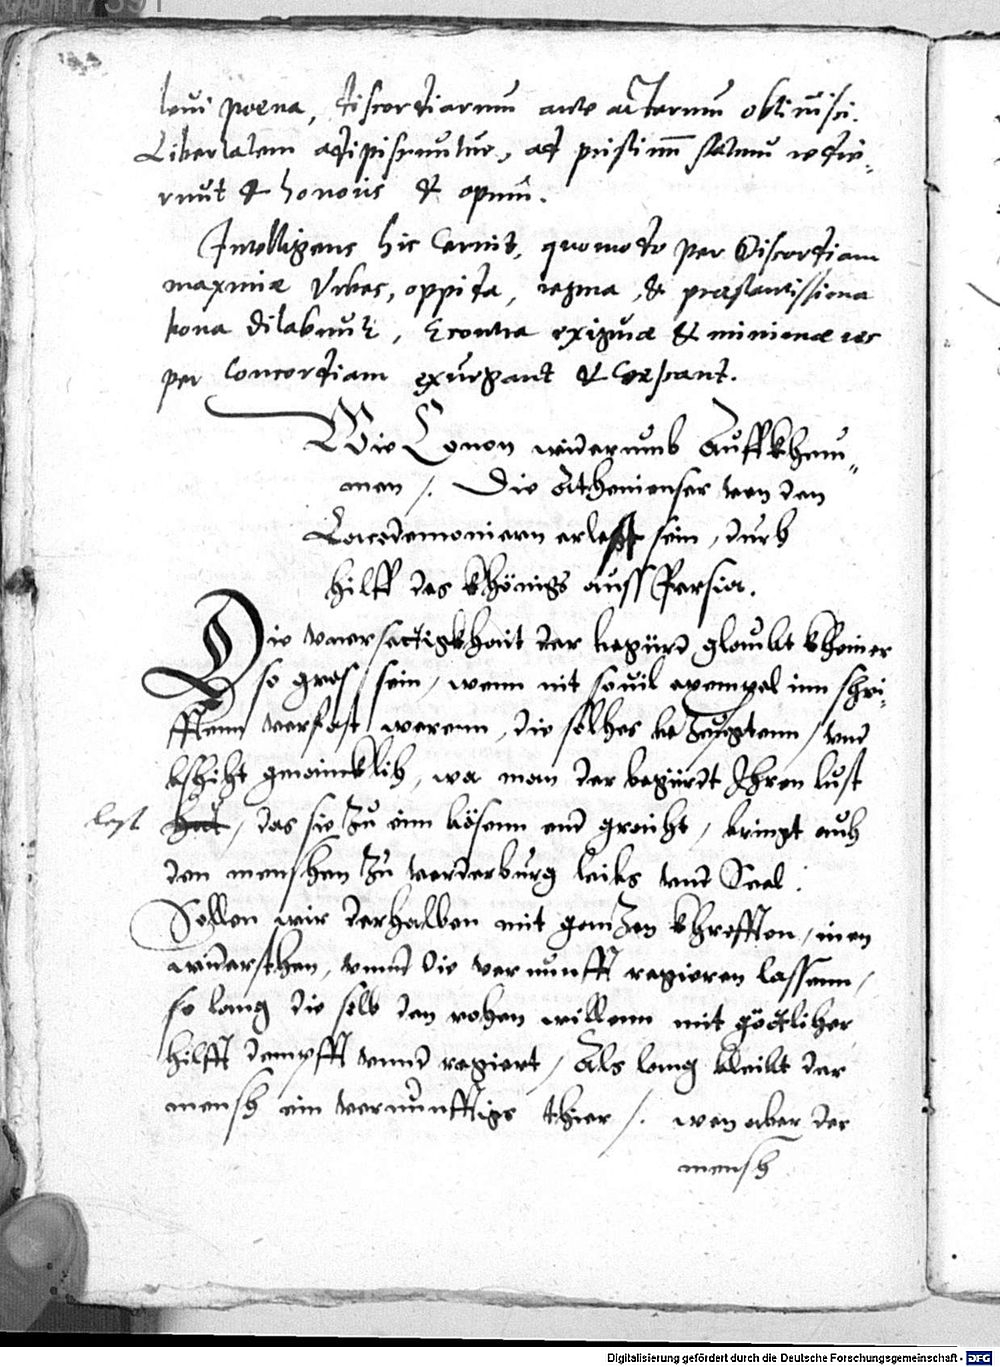 leui poena, discordiarum ante actarum obliuisci.
Libertatem adipiscuntur, ad pristinum statum redie-
runt & honoris & opum.
Intelligens hic Cernit, quomodo per Discordiam
maximæ Vrbes, oppida, regna, & præstantissima
bona dilabunt, Econtra exiguæ & minimæ res
per Concordiam exurgant & Crescant.
Wie Conon widerumb Auffkhom-
men /. Die Athenienser von den
Lacedemoniern erlest sein, durh
hilff des Khönigs auss Persia.
Die vnersactigkhait der begürd glaubt kheiner
so gros sein, wenn nit souil exempel inn schri-
fftenn verfast werenn, die solhes bezeugtenn, vnd
bshiht gmaincklih, wa man der begürdt Ihren lust
lest hat, das sie zu eim bösenn end graiht, bringt auh
den menshen zu verderbung leibs vnd Seel.
Sollen wir derhalben mit gantzen khrefften, inen
widersthen, vnnd die vernunfft regieren lassenn,
so lang die selb den rohen willenn mit göttliher
hilfft dempfft vnnd regiert, Als lang bleibt der
mensh ein vernünfftigs thier /. wen aber der
mensh
Digitalisierung gefördert durch die Deutsche Forschungsgemeinschaft - DFG